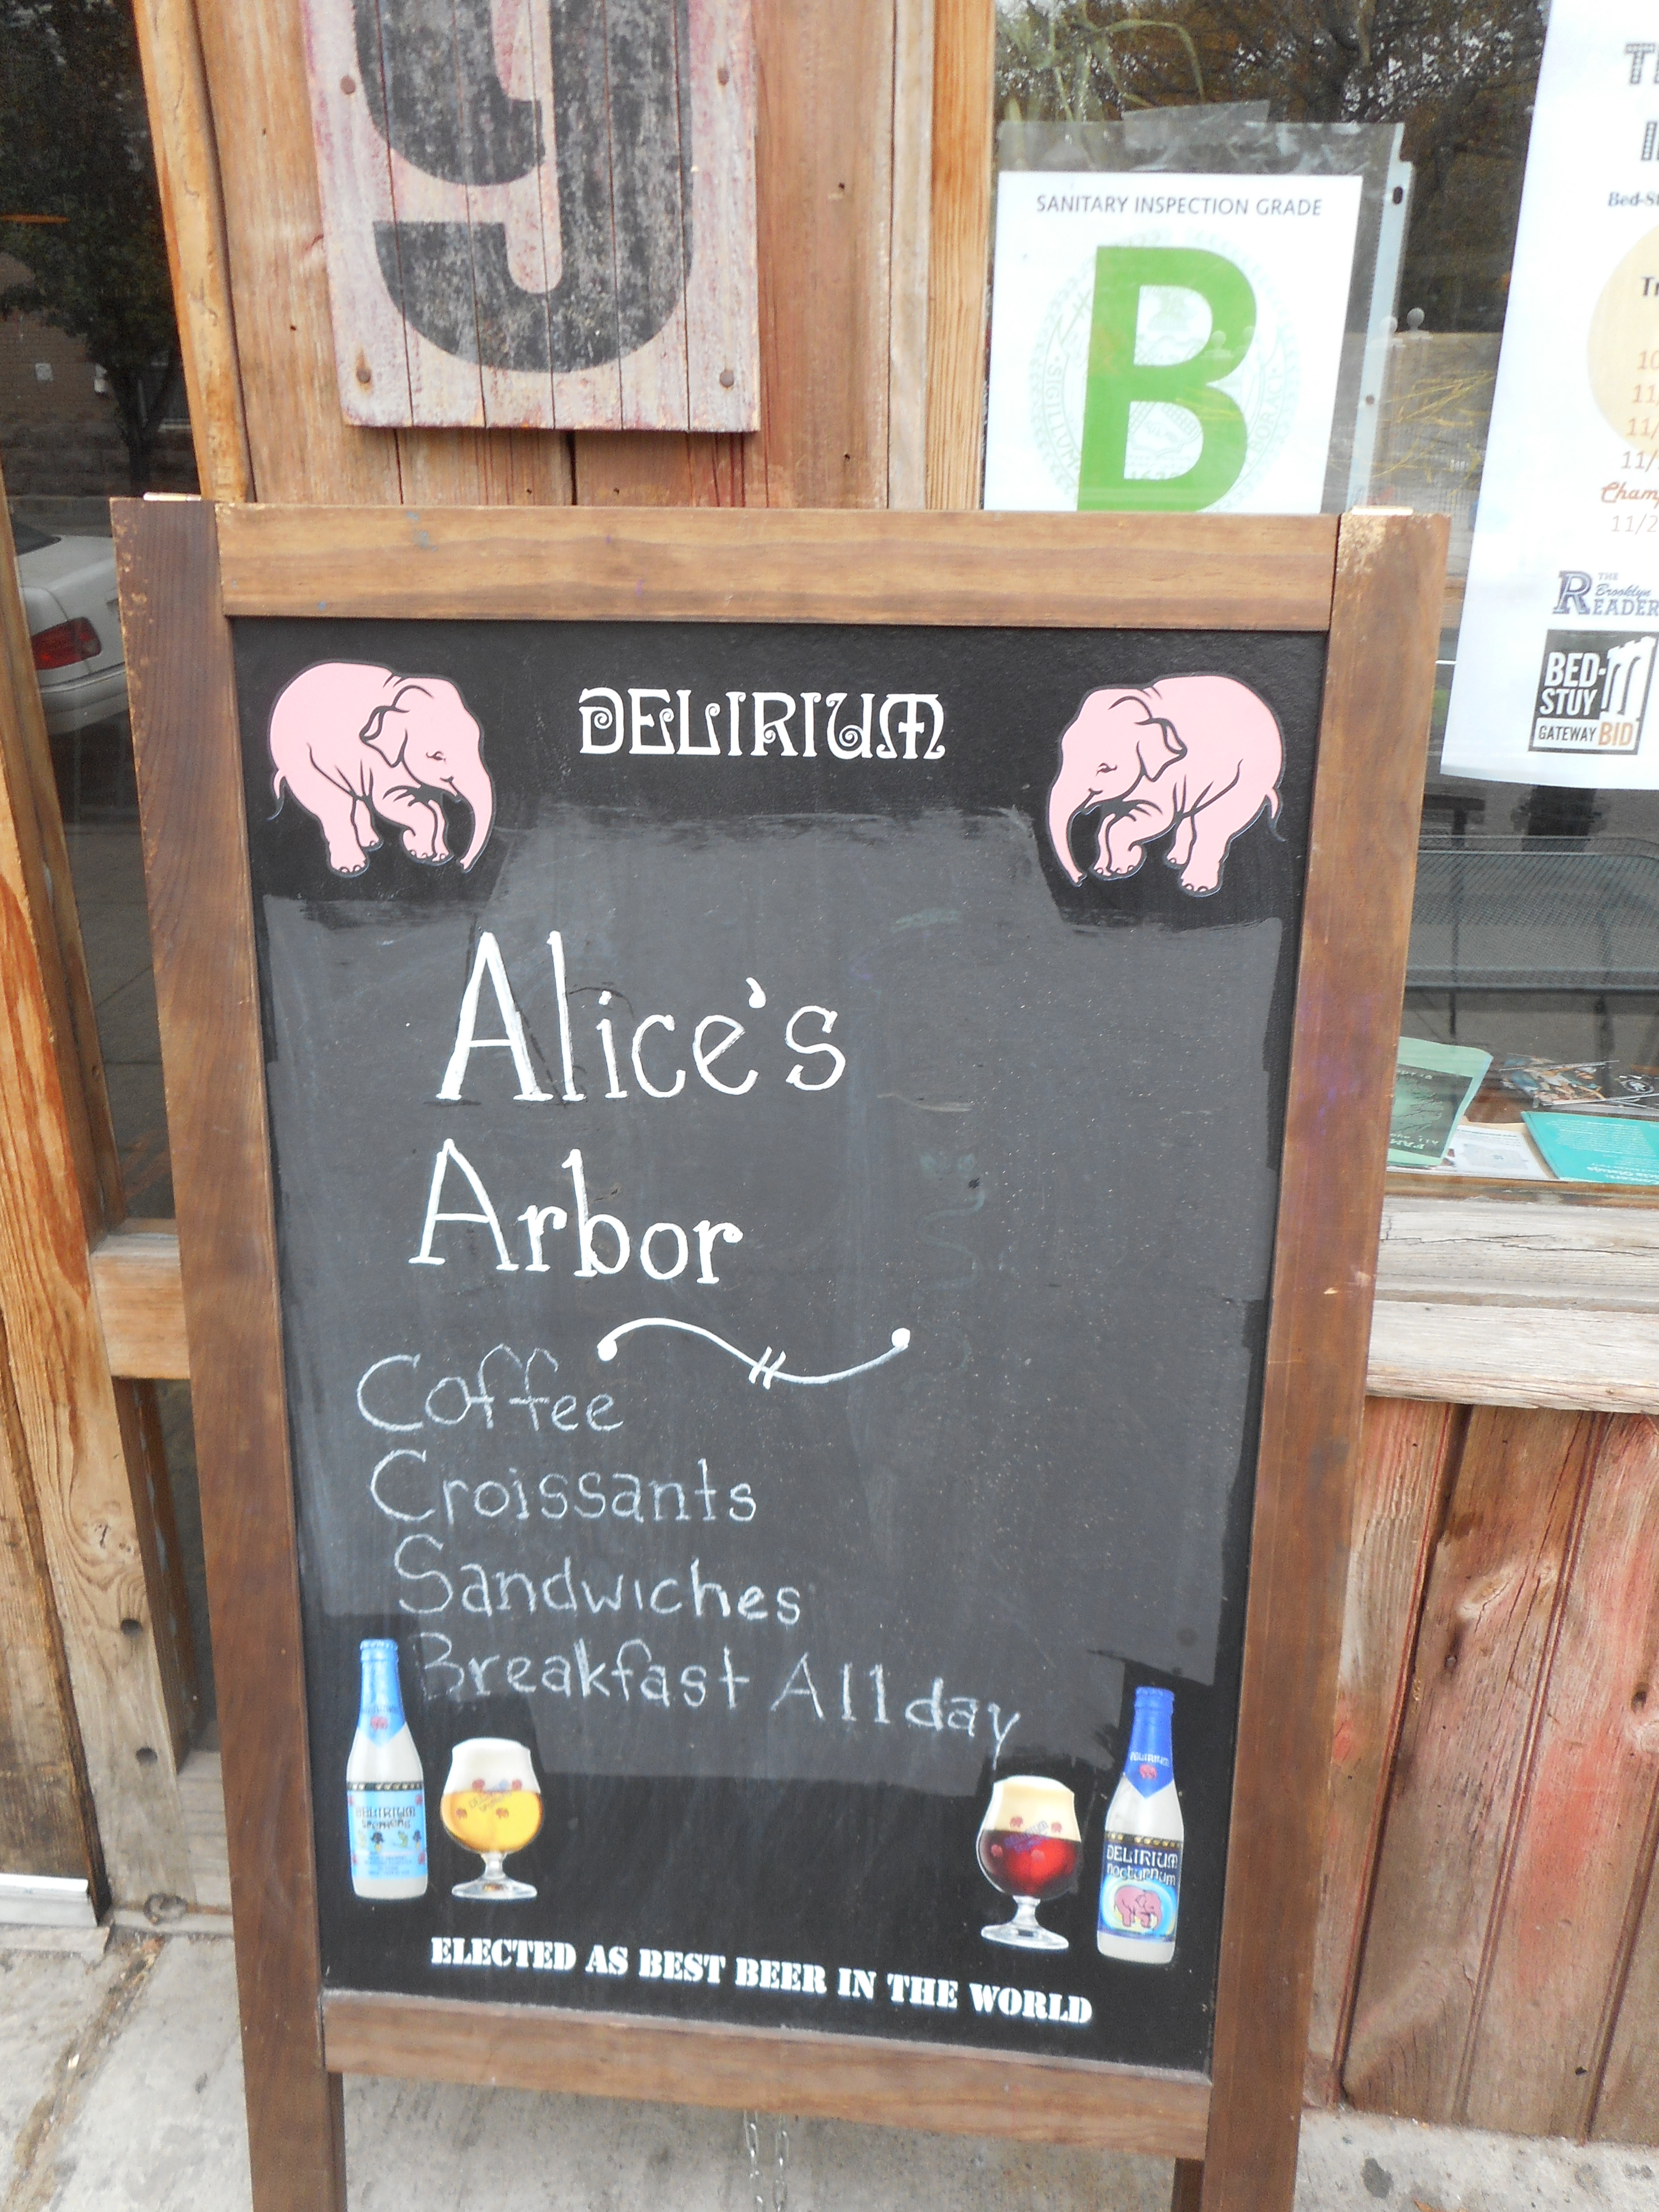 9
SANITARY INSPECTION GRADE
B
Bed-St
10
11/
11/
11/
Champ
11/2
THE
Brooklyn
READER
BED-
STUY
GATEWAY BID
DELIRIUM
Alice's
Arbor
Coffee
Croissants
Sandwiches
Breakfast All day
DELIRIUM
tremens
DELIRIUM
DELIRIUM
nocturnum
ELECTED AS BEST BEER IN THE WORLD